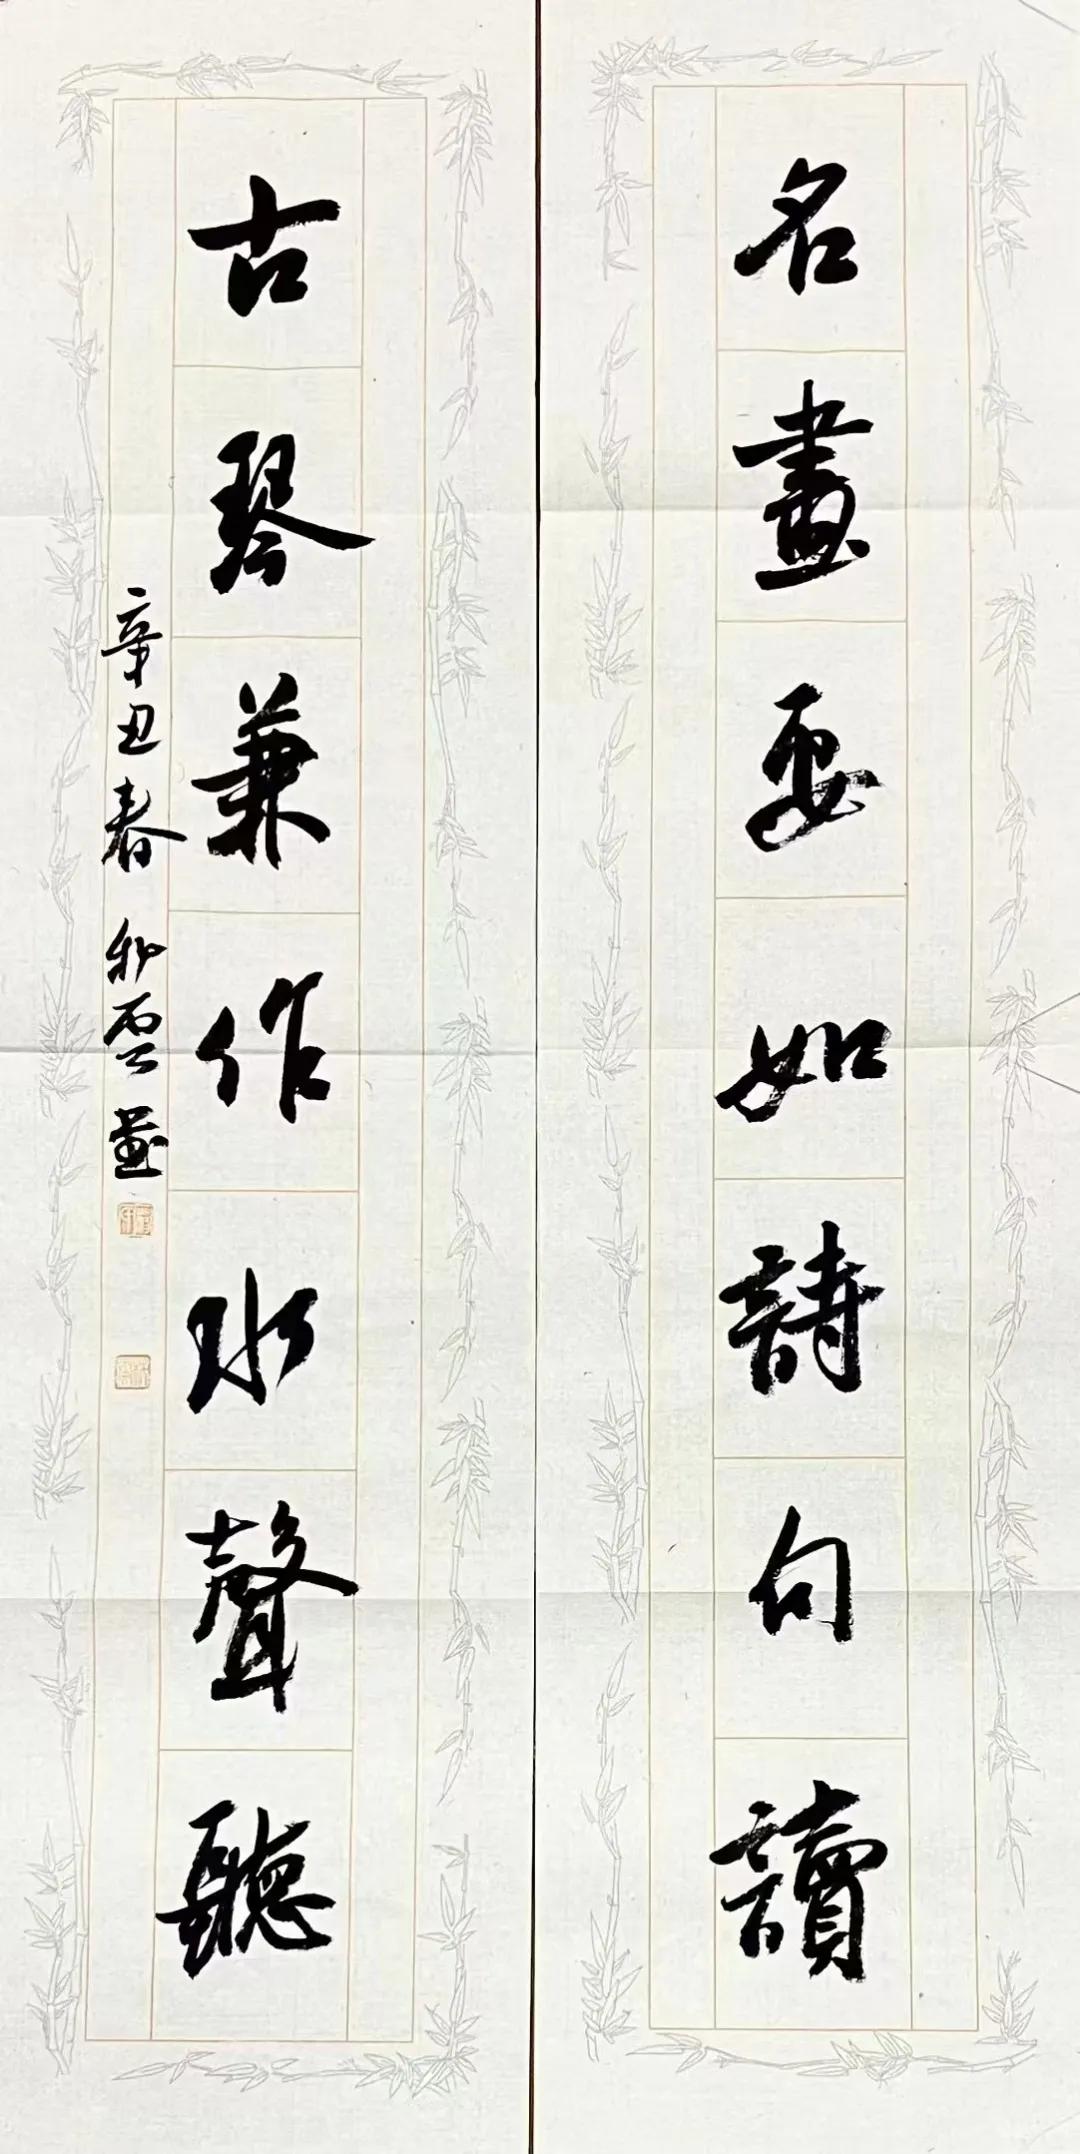 名畫要如詩句讀
古琴兼作水聲聽
辛丑春